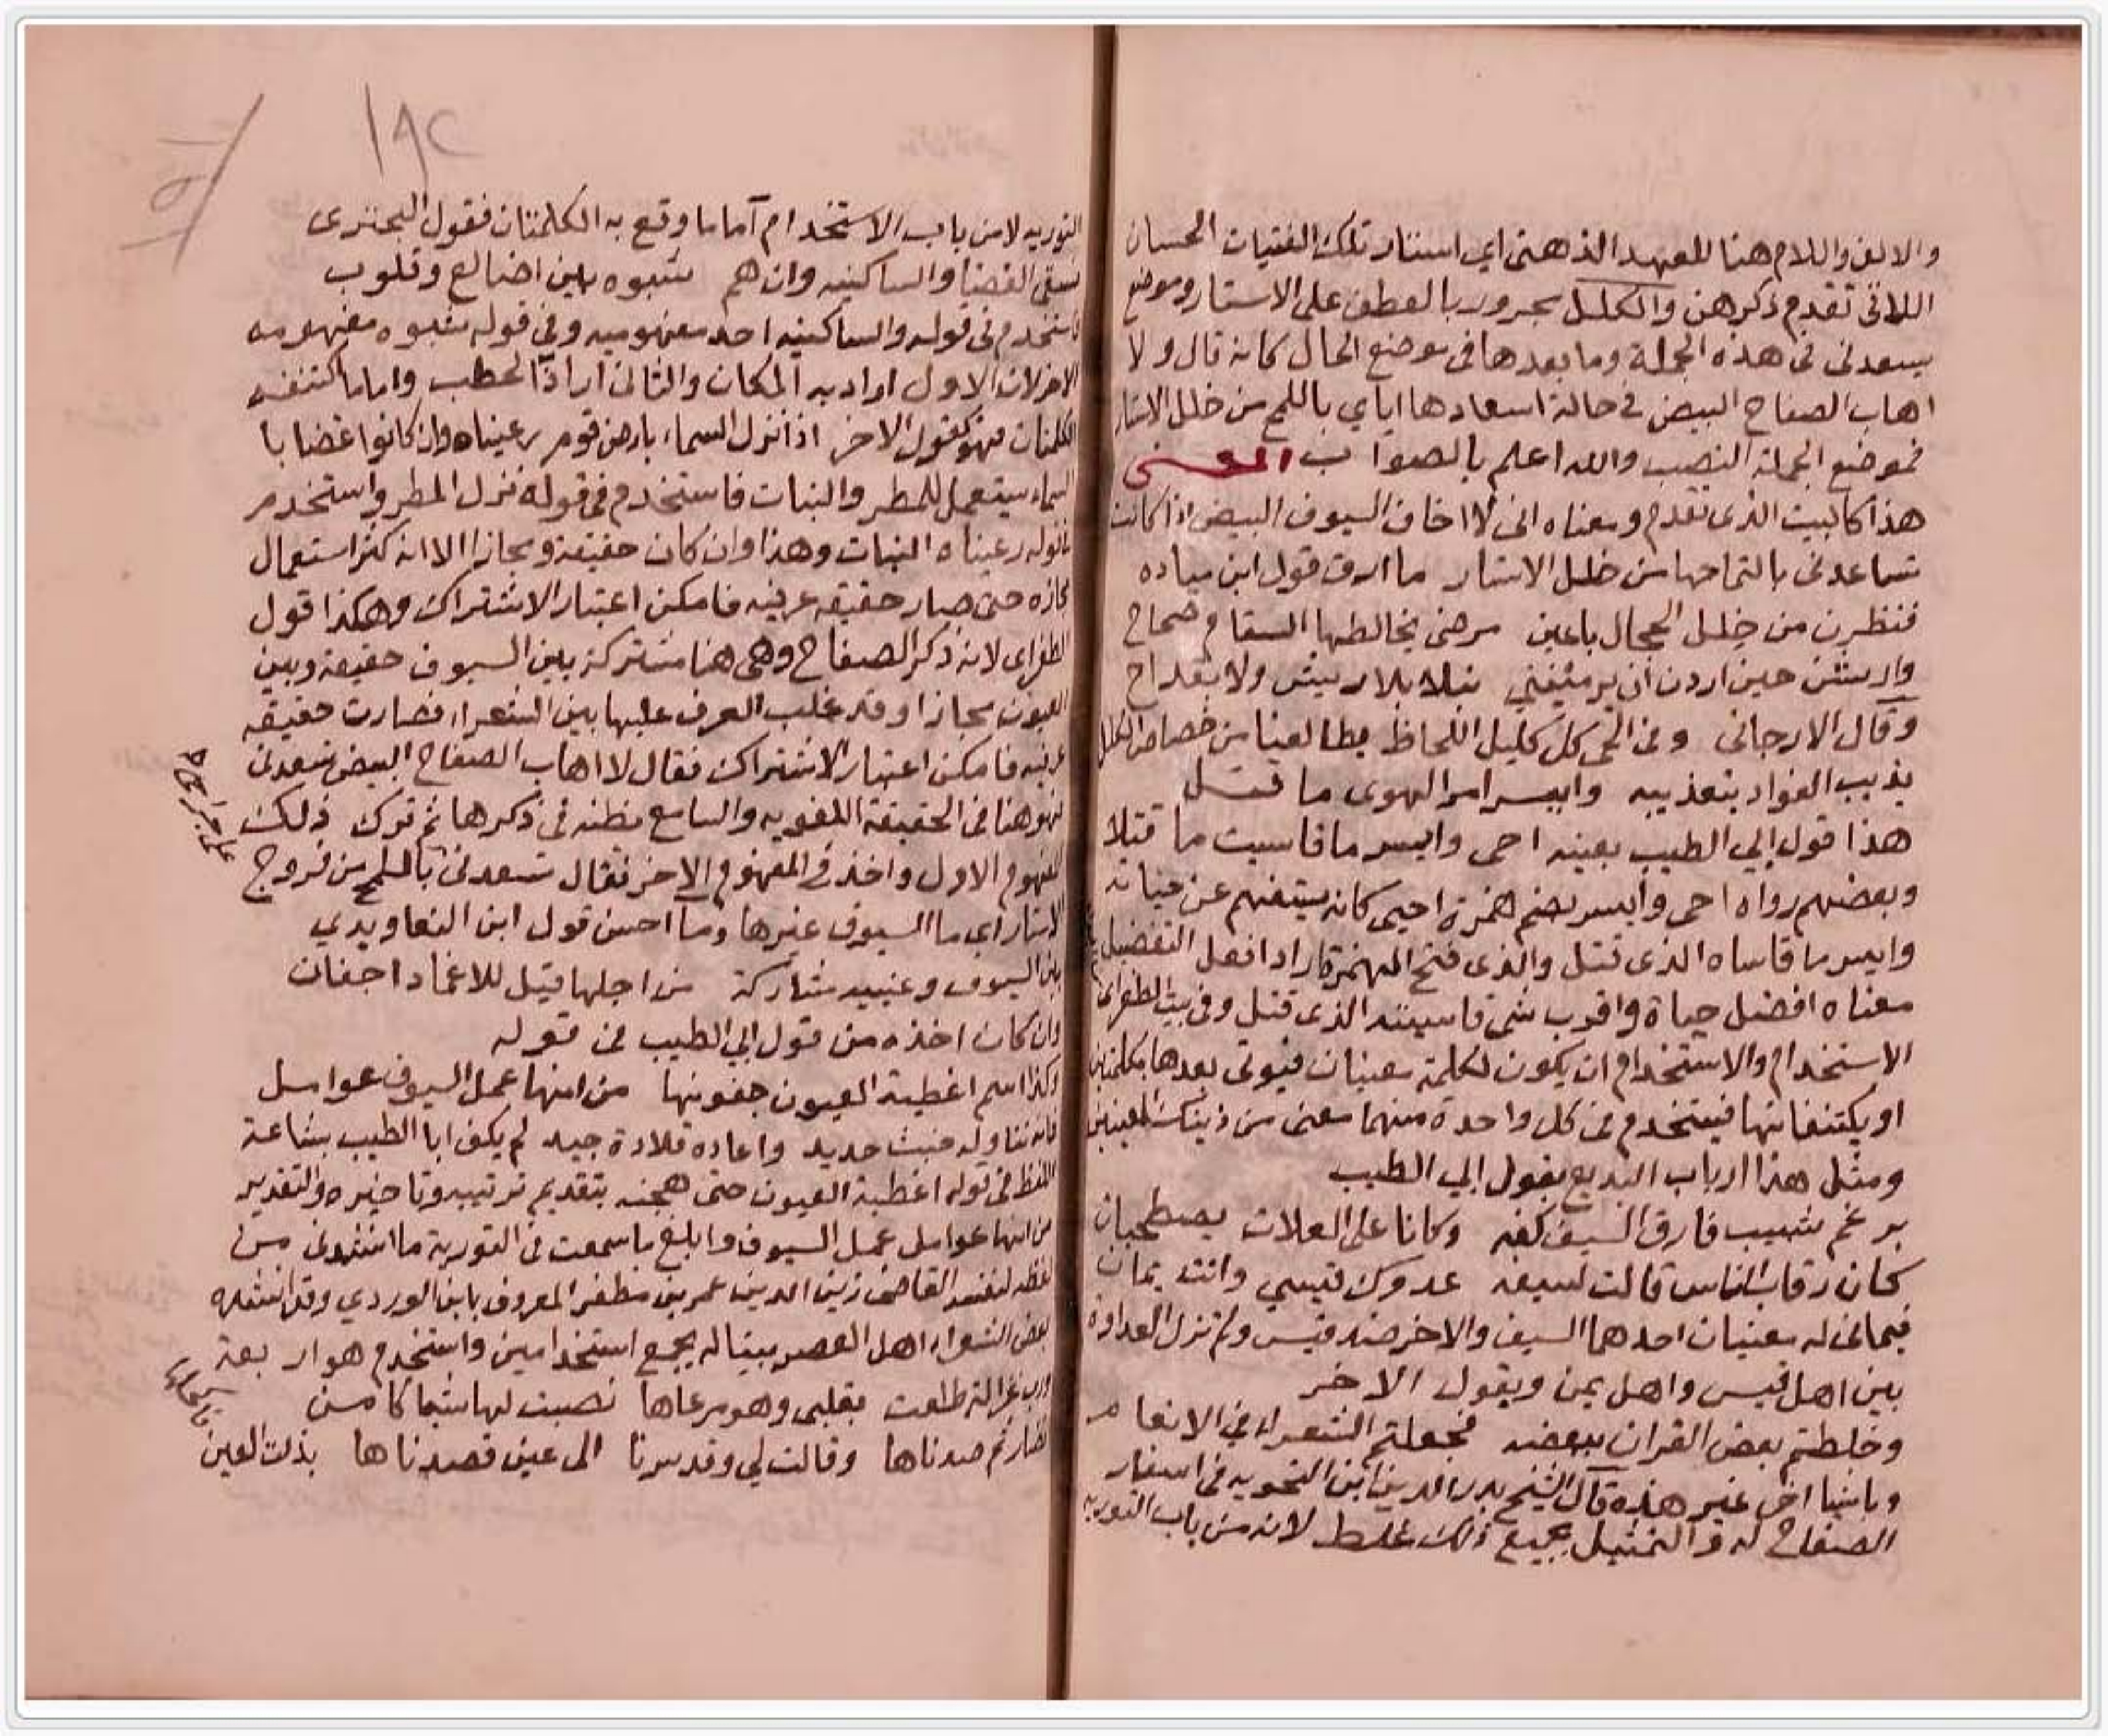 والالف واللام هنا للعهد الذهنى اي استار تلك الفتيات الحسان
اللاتى تقدم ذكرهن والكلل مجرور بالعطف على الاستار وموضع
يسعدنى فى هذه الجملة وما بعدها فى موضع الحال كانه قال ولا
اهاب الصفاح البيض في حالة اسعادها اياي باللمح من خلل الاستار
فموضع الجملة النصب والله اعلم بالصواب المعنى
هذا كالبيت الذى تقدم ومعناه انى لا اخاف السيوف البيض اذا كانت
تساعدنى بالتماحها من خلل الاستار ما ارق قول ابن مياده
فنظرن من خلل الحجال باعين مرضى يخالطها السقام صحاح
وارشن حين اردن ان يرمينني نبلا بلا ريش ولا بقداح
وقال الارجانى وفى الحى كل كليل اللحاظ يطالعنا من خصاص الكلل
يذيب الفواد بتعذيبه وايسر امر الهوى ما قتل
هذا قول ابي الطيب بعينه احى وايسر ما قاسيت ما قتلا
وبعضهم رواه احى وايسر بضم همزة احيى كانه يستفهم عن حياته
وايسر ما قاساه الذى قتل والذى فتح الهمزة اراد افعل التفضيل
معناه افضل حياة واقرب شى قاسيته الذى قتل وفى بيت الطغراى
الاستخدام والاستخدام ان يكون لكلمة معنيان فيوتى بعدها بكلمتين
او يكتنفانها فيستخدم فى كل واحدة منهما معنى من ذينك المعنيين
ومثل هذا ارباب البديع بقول ابي الطيب
برغم شبيب فارق السيف كفه وكانا على العلات يصطحبان
كان رقاب الناس قالت لسيفه عدوك قيسي وانت يمان
فيمانى له معنيان احدهما السيف والاخر ضد قيس ولم تزل العداوة
بين اهل قيس واهل يمن وبقول الاخر
وخلطتم بعض القران ببعضه فجعلتم الشعراء في الانعام
وباشيا اخر غير هذه قال الشيخ بدر الدين ابن النحويه فى اسفار
الصفاح له والتمثيل بجميع ذلك غلط لانه من باب التوريه
التوريه لا من باب الاستخدام اما ما وقع به الكلمتان فقول البحترى
فسقى الغضا والساكنيه وان هم شبوه بين اضالع وقلوب
فاستخدم فى قوله والساكنيه احد مفهوميه وفى قوله شبوه مفهومه
الاخر لان الاول اراد به المكان والثانى اراد الحطب واما ما اكتنفه
الكلمتان فهو كقول الاخر اذا نزل السماء بارض قوم رعيناه وان كانوا غضابا
السماء يستعمل للمطر والنبات فاستخدم فى قوله نزل المطر واستخدم
بقوله رعيناه النبات وهذا وان كان حقيقة ومجازا الا انه كثر استعمال
مجازه حتى صار حقيقه عرفيه فامكن اعتبار الاشتراك وهكذا قول
الطغراى لانه ذكر الصفاح وهى هنا مشتركة بين السيوف حقيقة وبين
العيون مجازا وقد غلب العرف عليها بين الشعراء فصارت حقيقه
عرفيه فامكن اعتبار الاشتراك فقال لا اهاب الصفاح البيض تسعدنى
فهو هنا فى الحقيقة اللغويه والسامع يظنه فى ذكرها ثم ترك ذلك
المفهوم الاول واخذ فى المفهوم الاخر فقال تسعدنى باللمح من فروج
الاستار اي ما السيوف غيرها وما احسن قول ابن التعاويدي
بين السيوف وعينيه مشاركة من اجلها قيل للاغماد اجفان
وان كان اخذه من قول ابي الطيب فى قوله
وكذا اسم اغطية العيون جفونها من انها عمل السيوف عوامل
فانه تناوله خبث حديد واعاده قلادة جيد لم يكف ابا الطيب بشاعة
اللفظ فى قوله اغطية العيون حتى هجنه بتقديم ترتيبه وتاخيره والتقدير
من انها عوامل عمل السيوف وابلغ ما سمعت فى التورية ما انشدنى من
لفظه لنفسه القاضى زين الدين عمر بن مظفر المعروف بابن الوردي وقد انشده
بعض الشعراء اهل العصر بيتا له يجمع استخدامين واستخدم هو اربعة
ورب غزالة طلعت بقلبى وهو مرعاها نصبت لها شباكا من
نضار ثم صدناها وقالت لي وقد سرنا الى عين قصدناها بذلت العين